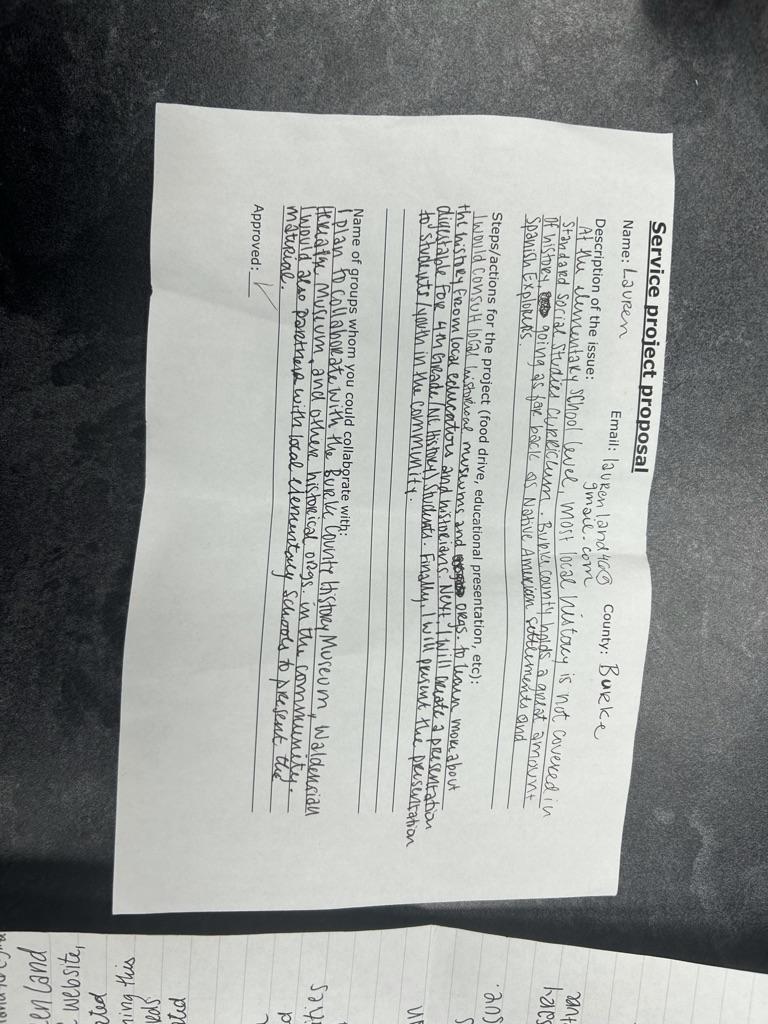 Service project proposal
Name: Lauren Email: laurenland400@ gmail.com County: Burke
Description of the issue:
At the elementary school level, most local history is not covered in
standard social studies curriculum. Burke county holds a great amount
of history, going as far back as Native American settlements and
Spanish Explorers.
Steps/actions for the project (food drive, educational presentation, etc):
I would consult local historical museums and orgs. to learn more about
the history from local educators and historians. Next, I will create a presentation
digestable for 4th Grade (NC History) students. Finally, I will present the presentation
to students/youth in the community.
Name of groups whom you could collaborate with:
I plan to collaborate with the Burke County History Museum, Waldensian
Heratige Museum, and other historical orgs. in the community.
I would also partner with local elementary schools to present the
material.
Approved: